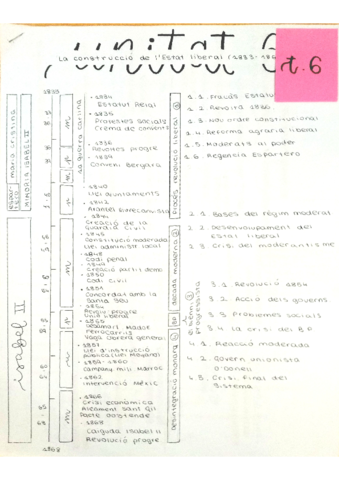 unitat 6
t.6
La construcció de l'Estat liberal (1833-186
1833
· 1834
Estatut Reial
· 1835
Protestes socials
Crema de convents
· 1836
Revolució progre
· 1839
Conveni Bergara
· 1840
Llei ajuntaments
· 1842
· 1844
Creació de la
Guardia Civil
· 1845
Constitució moderada
Llei administ local
· 1848
Codi penal
· 1849
Creació partit demo
· 1850
Codi civil
· 1851
Concordat amb la
Santa Seu
· 1854
Revolu progre
· 1855
Desamort Madoz
Ferrocarrils
Vaga general
· 1857
Llei instrucció
pública (Llei Moyano)
· 1859-1860
Company mili Marroc
· 1862
Intervenció Mèxic
· 1866
Crisi econòmica
Alçament Sant Gil
Pacte Oostende
· 1868
Caiguda Isabel II
Revolució progre
1868
maria cristina
MINORIA ISABEL II
isabel II
1a guerra carlina
revolució liberal
década moderada
BP
bienni progressista
desintegració monarq
1.1. Fracàs Estatut
1.2. Revolta 1836
1.3. Nou ordre constitucional
1.4. Reforma agraria liberal
1.5. Moderats al poder
1.6 Regencia Espartero
2.1. Bases del règim moderat
2.2 Desenvolupament del
Estat liberal
2.3. Crisi del moderantisme
3.1. Revolució 1854
3.2. Acció dels governs
3.3. Problemes socials
3.4 La crisi del BP
4.1. Reacció moderada
4.2. Govern unionista
O'Donell
4.3. Crisi final del
sistema